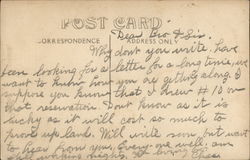 POST CARD
CORRESPONDENCE ADDRESS ONLY
Dear Bro & Sis.
Why dont you write. have
been looking for a letter for a long time, we
want to know how you are getting along. I
suppose you know that I drew #10 on
that reservation. Dont know as it is
lucky as it will cost so much to
prove up land. Will write soon, but want
to hear from you, Every one well, am
working nights.